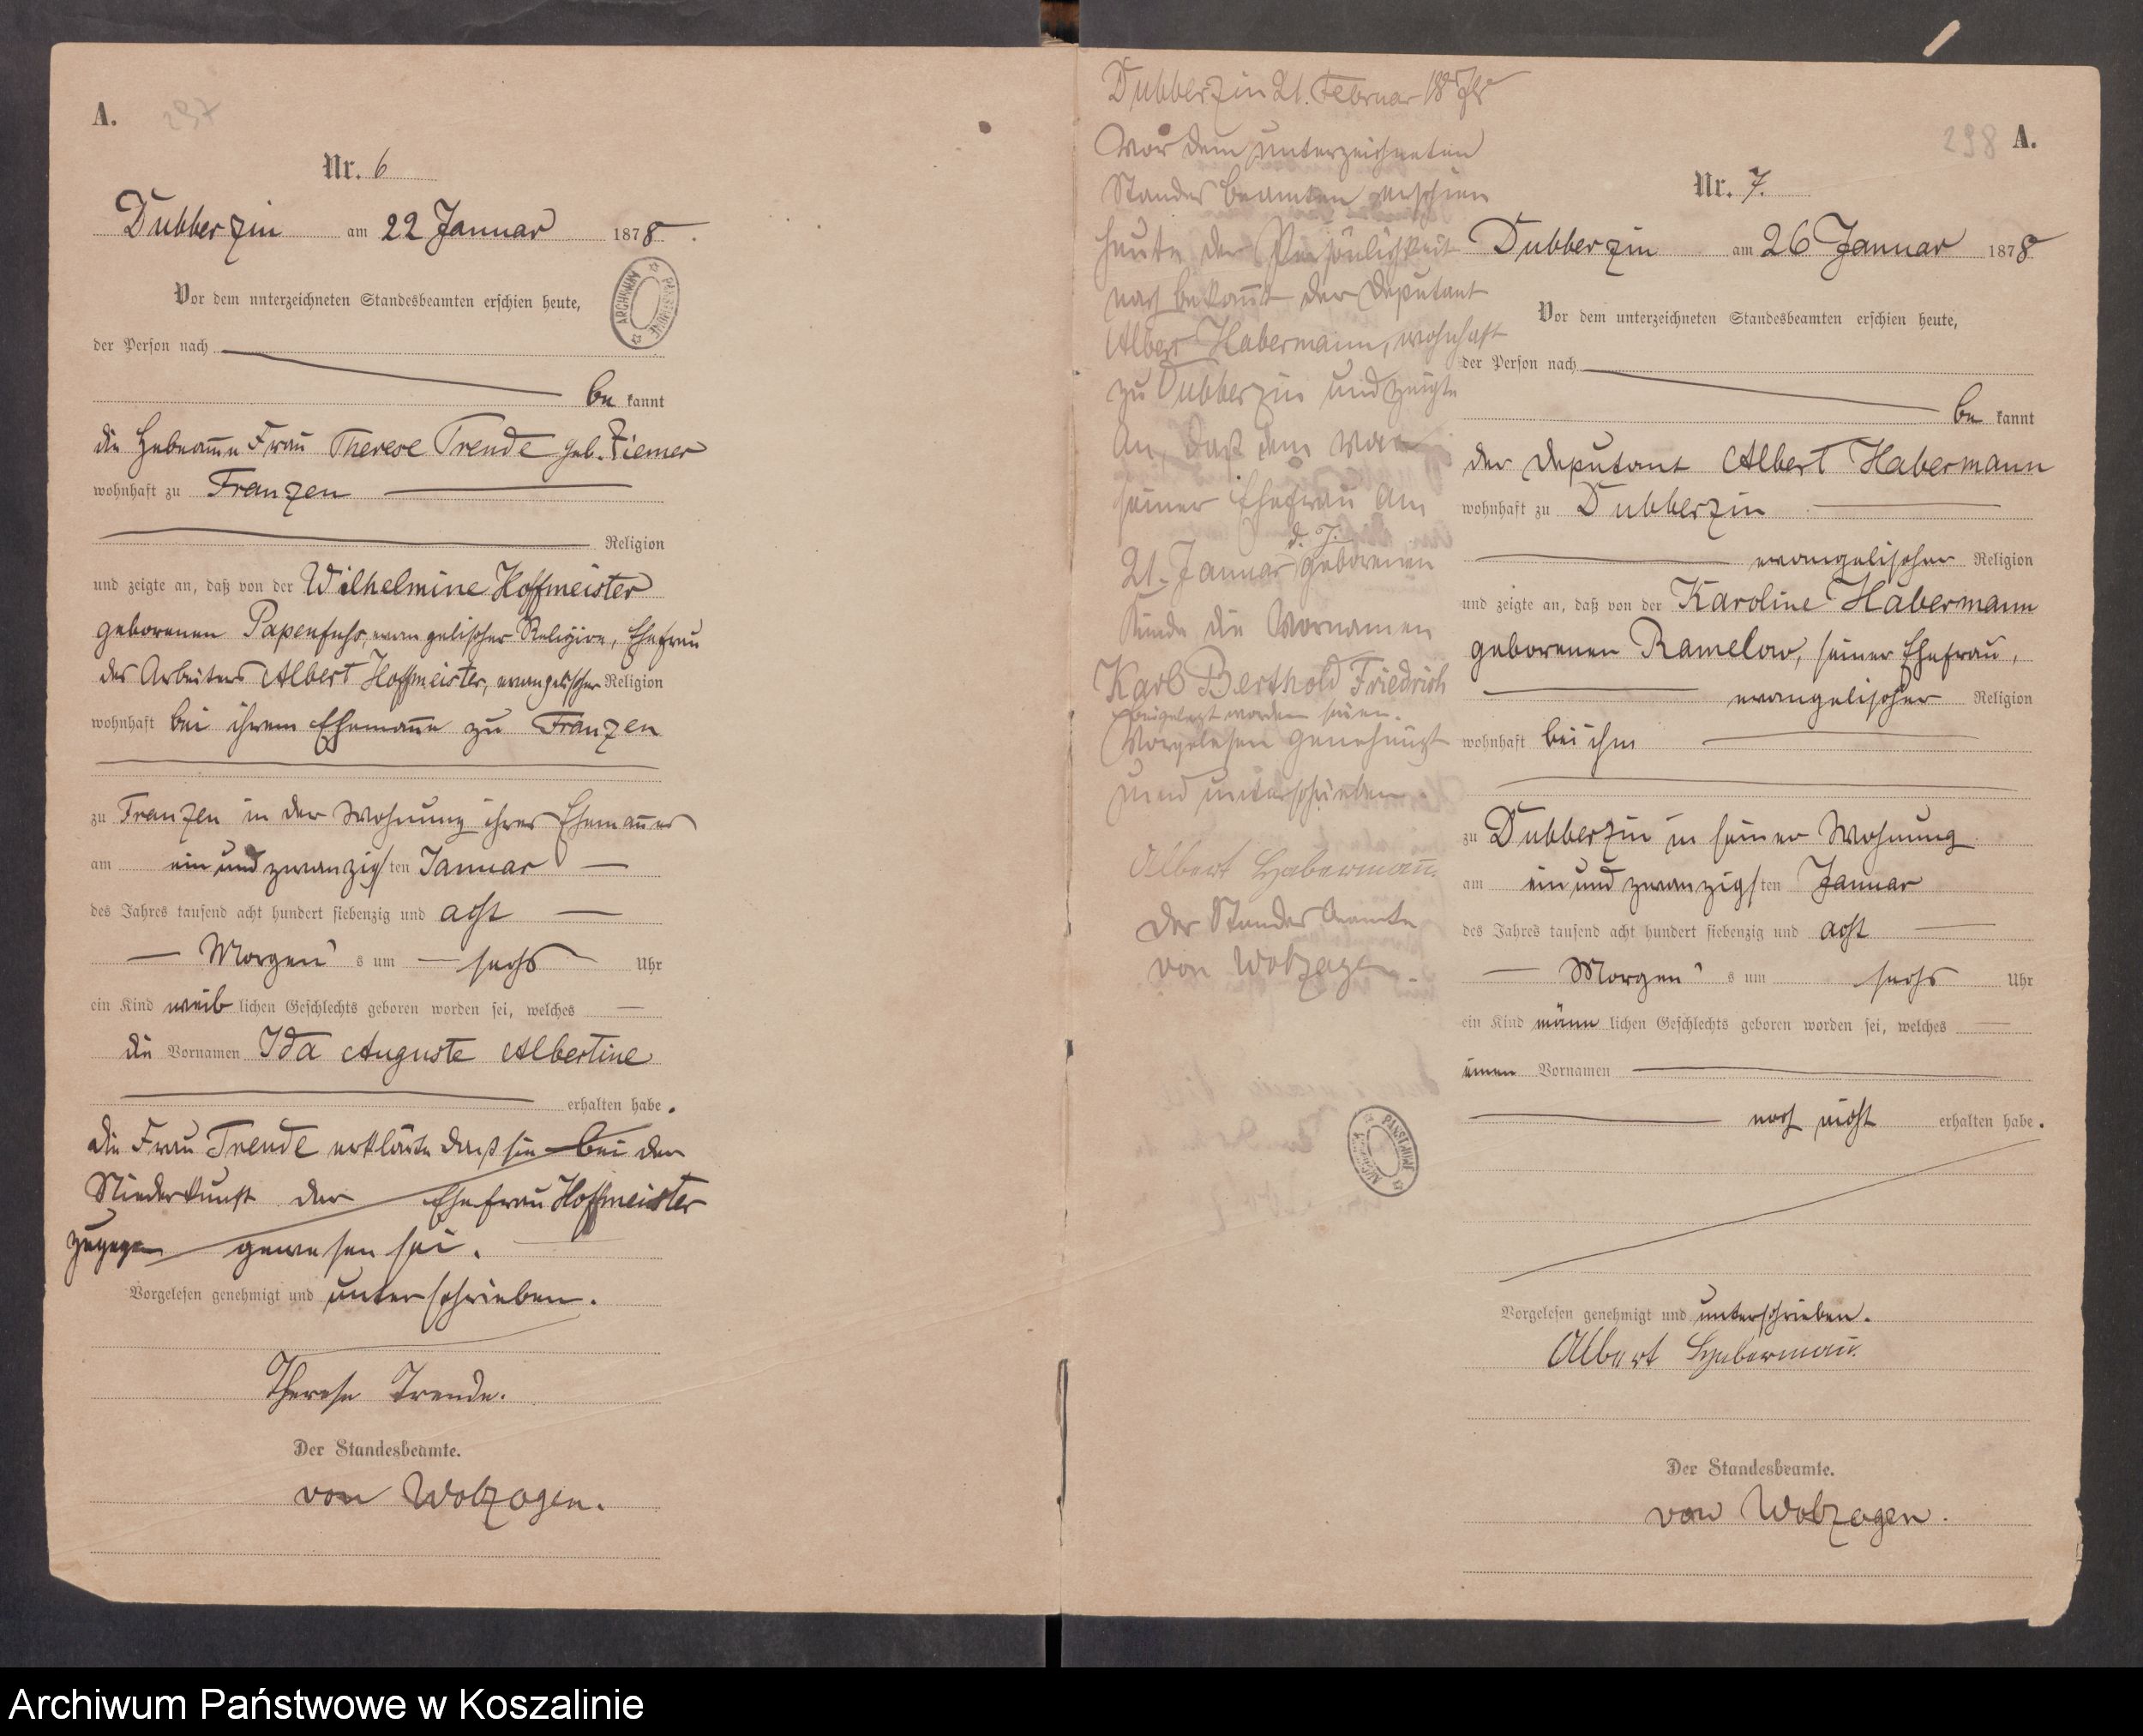 A. 297
Nr. 6
Dubberzin am 22 Januar 1878.
Vor dem unterzeichneten Standesbeamten erschien heute,
ARCHIWUM PAŃSTWOWE
der Person nach
be kannt
die Hebeamme Frau Therese Trende geb. Ziemer
wohnhaft zu Franzen
Religion
und zeigte an, daß von der Wilhelmine Hoffmeister
geborenen Papenfuhs, evangelischer Religion, Ehefrau
des Arbeiters Albert Hoffmeister, evangelischer Religion
wohnhaft bei ihrem Ehemanne zu Franzen
zu Franzen in der Wohnung ihres Ehemannes
am ein und zwanzigsten Januar
des Jahres tausend acht hundert siebenzig und acht
Morgens um sechs Uhr
ein Kind weiblichen Geschlechts geboren worden sei, welches
die Vornamen Ida Auguste Albertine
erhalten habe.
die Frau Trende erklärte daß sie bei der
Niederkunft der Ehefrau Hoffmeister
zugegen gewesen sei.
Vorgelesen genehmigt und unterschrieben.
Therese Trende.
Der Standesbeamte.
von Wolzogen.
Dubberzin 21. Februar 1878
Vor dem unterzeichneten
Standesbeamten erschien
heute der Persönlichkeit
nach bekannt der Deputant
Albert Habermann, wohnhaft
zu Dubberzin und zeigte
an, daß dem von
seiner Ehefrau am
21. Januar d. J. geborenen
Kinde die Vornamen
Karl Berthold Friedrich
beigelegt worden seien.
Vorgelesen genehmigt
und unterschrieben.
Albert Habermann.
Der Standesbeamte
von Wolzogen.
PAŃSTWOWE ARCHIWUM
298 A.
Nr. 7.
Dubberzin am 26 Januar 1878
Vor dem unterzeichneten Standesbeamten erschien heute,
der Person nach
be kannt
der Deputant Albert Habermann
wohnhaft zu Dubberzin
evangelischer Religion
und zeigte an, daß von der Karoline Habermann
geborenen Ramelow, seiner Ehefrau,
evangelischer Religion
wohnhaft bei ihm
zu Dubberzin in seiner Wohnung
am ein und zwanzigsten Januar
des Jahres tausend acht hundert siebenzig und acht
Morgens um sechs Uhr
ein Kind männlichen Geschlechts geboren worden sei, welches
einen Vornamen
noch nicht erhalten habe.
Vorgelesen genehmigt und unterschrieben.
Albert Habermann.
Der Standesbeamte.
von Wolzogen.
Archiwum Państwowe w Koszalinie